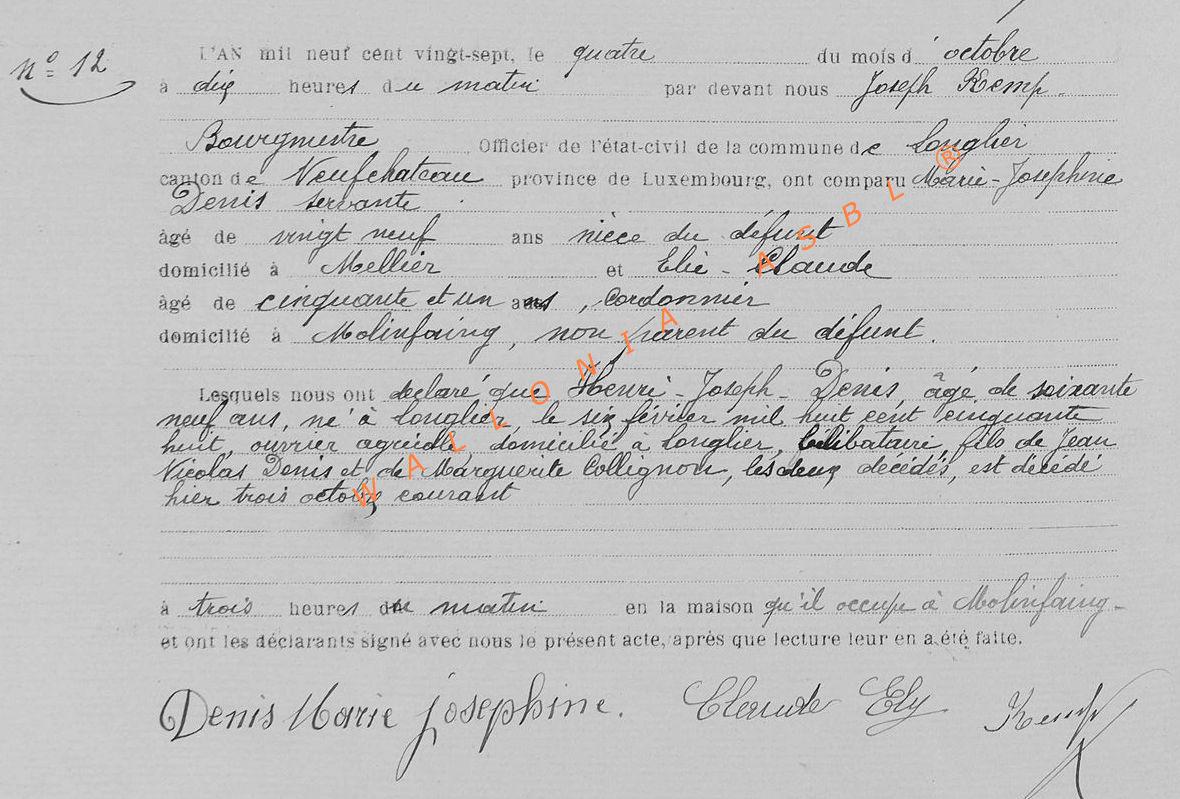 nº 12
L'AN mil neuf cent vingt-sept, le quatre du mois d'octobre
à dix heures du matin par devant nous Joseph Kemp.
Bourgmestre Officier de l'état-civil de la commune de Longlier
canton de Neufchateau province de Luxembourg, ont comparu Marie-Josephine
Denis servante
âgé de vingt neuf ans nièce du défunt
domicilié à Mellier et Elie-Claude
âgé de cinquante et un ans, cordonnier
domicilié à Molinfaing, non parent du défunt.
Lesquels nous ont déclaré que Henri-Joseph-Denis, âgé de soixante
neuf ans, né à Longlier, le six février mil huit cent cinquante
huit, ouvrier agricole, domicilié à Longlier, célibataire, fils de Jean
Nicolas Denis et de Marguerite Collignon, les deux décédés, est décédé
hier trois octobre courant
à trois heures du matin en la maison qu'il occupe à Molinfaing-
et ont les déclarants signé avec nous le présent acte, après que lecture leur en a été faite.
Denis Marie josephine. Claude Ely Kemp
WALLONIA ASBL ®